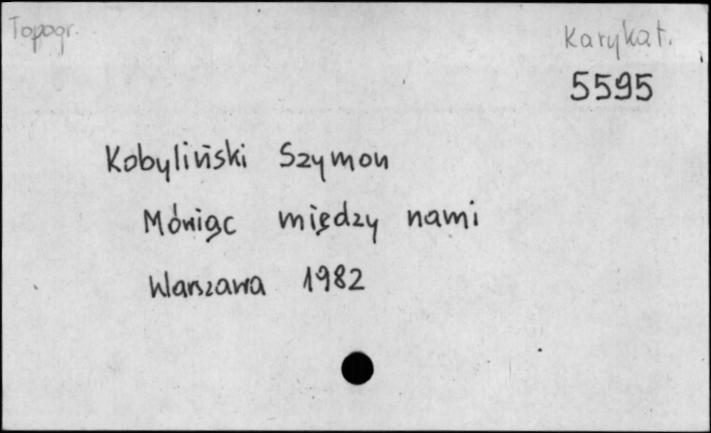 Topogr.
Karykat.
5595
Kobyliński Szymon
Mówiąc między nami
Warszawa 1982